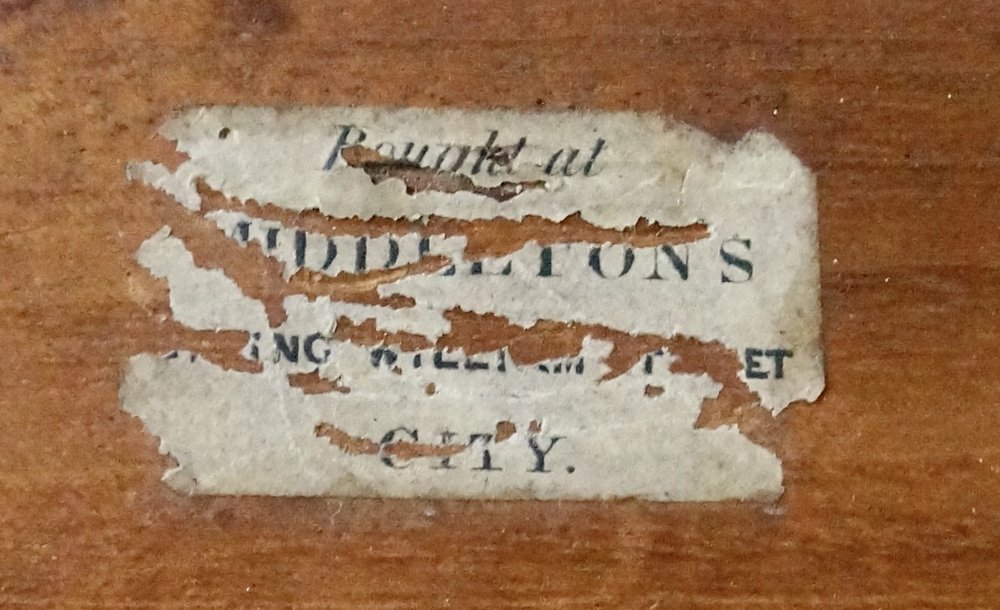 Bought at
IDDLETONS
KING WILLIAM STREET
CITY.